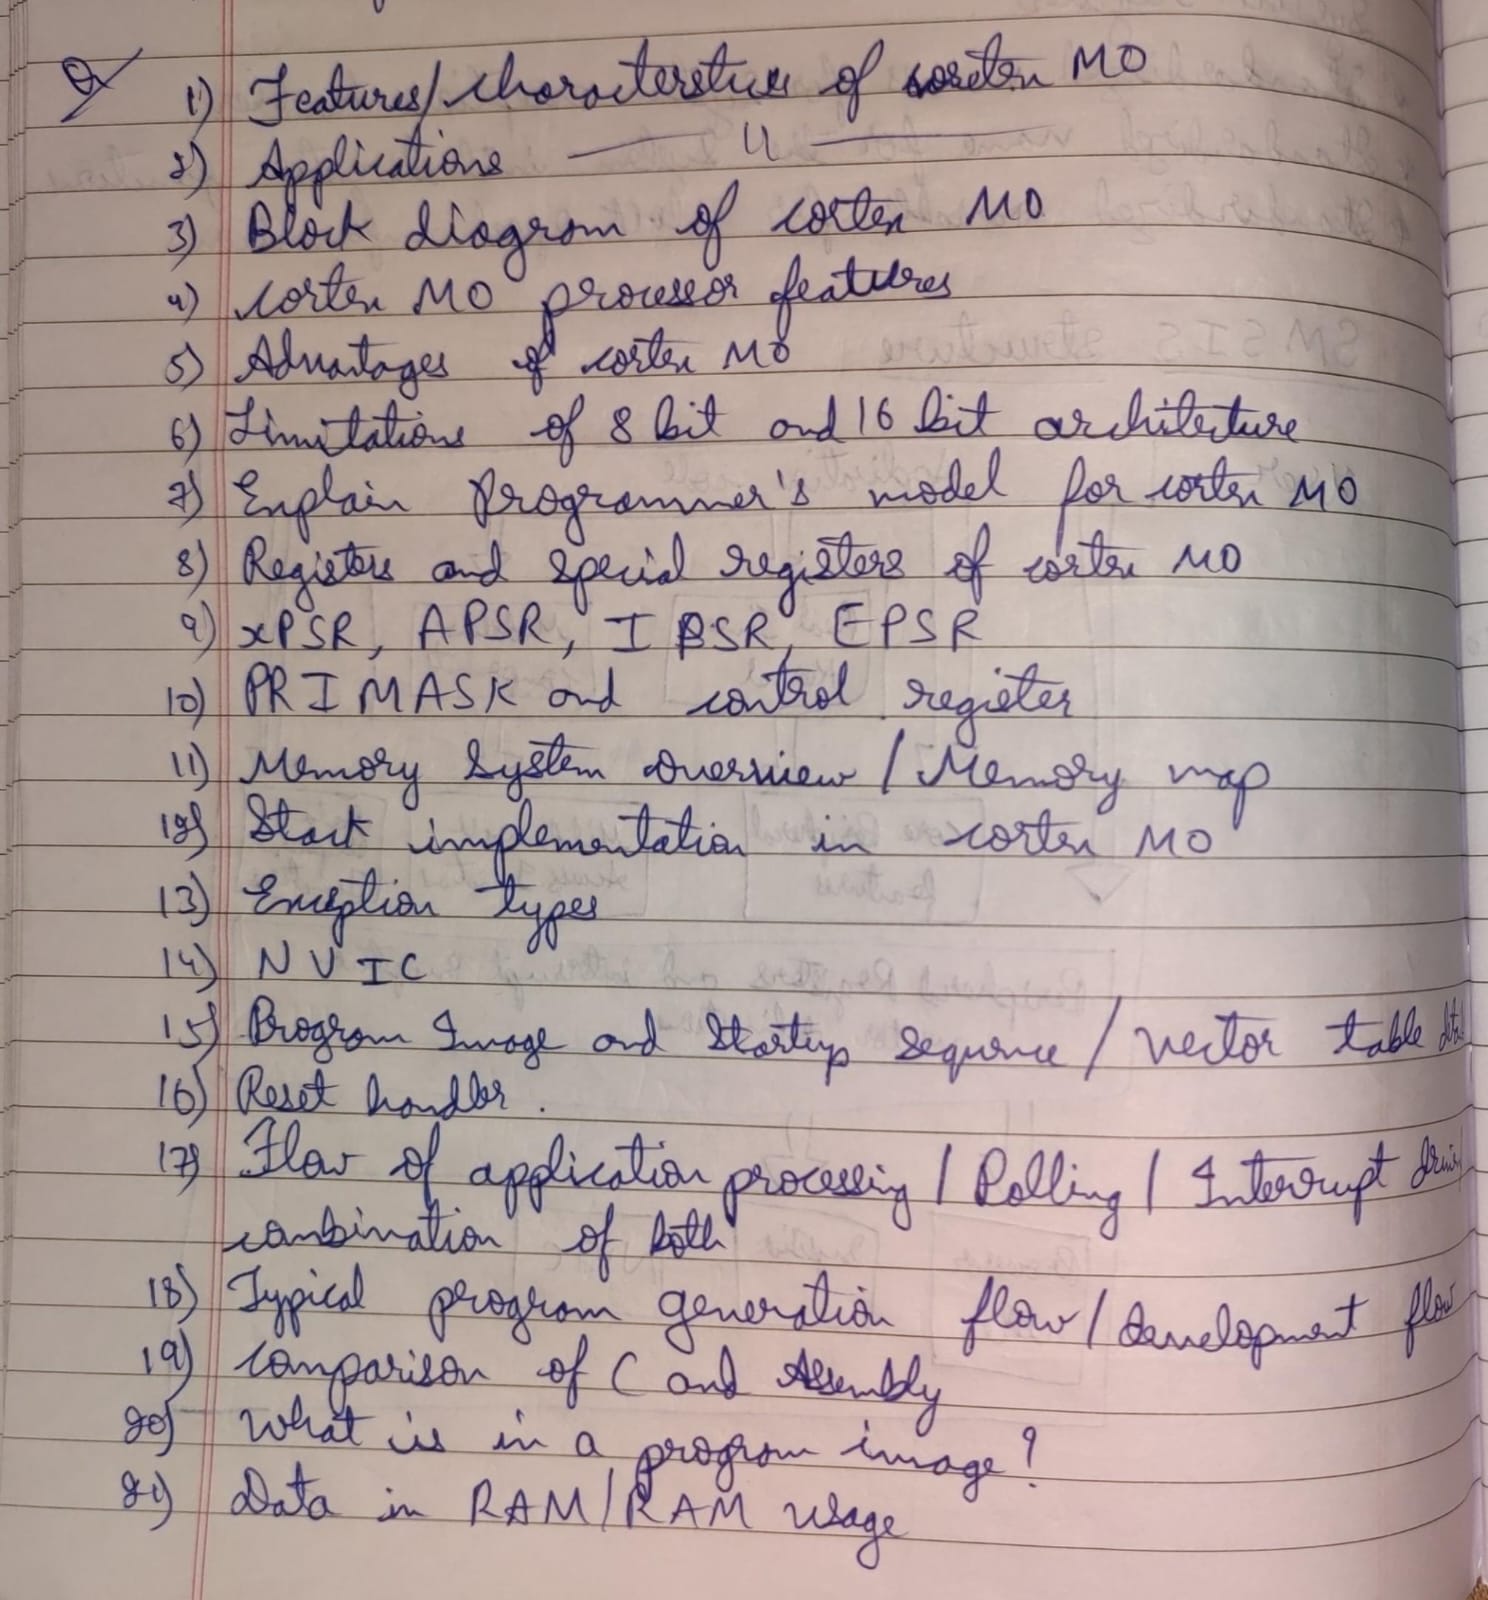 Q
1) Features/characteristics of cortex M0
2) Applications — 11 —
3) Block diagram of cortex M0
4) cortex M0 processor features
5) Advantages of cortex M0
6) Limitations of 8 bit and 16 bit architecture
7) Explain Programmer's model for cortex M0
8) Registers and special registers of cortex M0
9) xPSR, APSR, IPSR, EPSR
10) PRIMASK and control register
11) Memory System overview / Memory map
12) Stack implementation in cortex M0
13) Exception types
14) NVIC
15) Program Image and Startup Sequence / vector table
16) Reset handler.
17) Flow of application processing / Polling / Interrupt
combination of both
18) Typical program generation flow / development flow
19) comparison of C and Assembly
20) What is in a program image?
21) Data in RAM/RAM usage